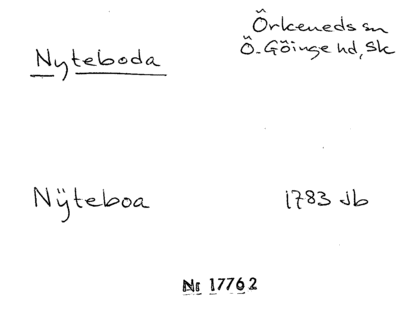 Örkeneds sn
Nyteboda Ö. Göinge hd, Sk
Nÿteboa 1783 Jb
Nr 17762